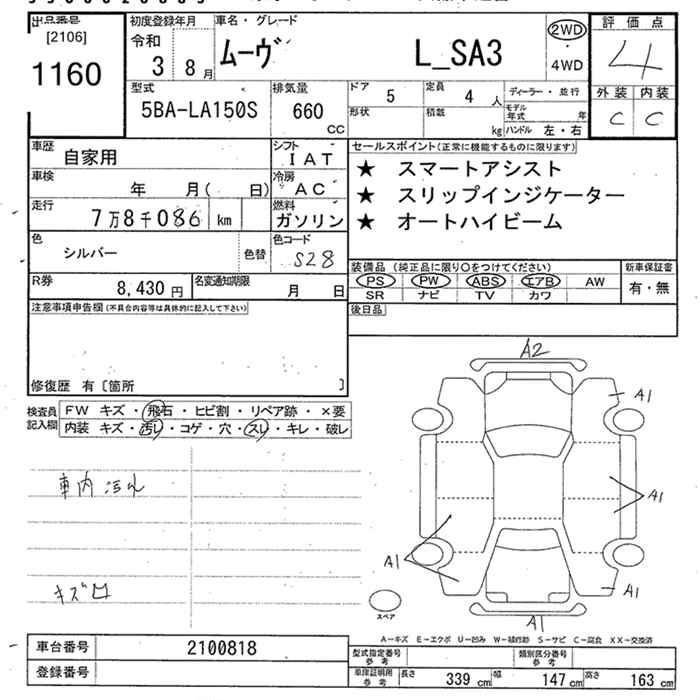 出品番号
[2106]
1160
初度登録年月
令和
3 8月
車名・グレード
ムーヴ L_SA3
2WD
・
4WD
評価点
4
外装 内装
C C
型式
5BA-LA150S
排気量
660
CC
ドア
5
定員
4 人
形状
積載
kg
ディーラー・並行
モデル年式 年
ハンドル 左・右
車歴
自家用
シフト
IAT
車検
年 月( 日)
冷房
AC
走行
7万8千086 km
燃料
ガソリン
色
シルバー
色替
色コード
S28
R券
8,430 円
名変通知期限
月 日
セールスポイント(正常に機能するものに限ります)
★ スマートアシスト
★ スリップインジケーター
★ オートハイビーム
装備品 (純正品に限り○をつけてください)
PS PW ABS エアB AW
SR ナビ TV カワ
新車保証書
有・無
後日品
注意事項申告欄(不具合内容等は具体的に記入して下さい)
修復歴 有〔箇所 〕
検査員
記入欄
FW キズ・飛石・ヒビ割・リペア跡・×要
内装 キズ・汚レ・コゲ・穴・スレ・キレ・破レ
車内汚れ
A2
A1
A1
A1
A1
A1
スペア
A-キズ E-エクボ U-凹み W-補修跡 S-サビ C-腐食 XX-交換済
車台番号 2100818
登録番号
型式指定番号
参考
類別区分番号
参考
車庫証明用
参考
長さ 339 cm
幅 147 cm
高さ 163 cm